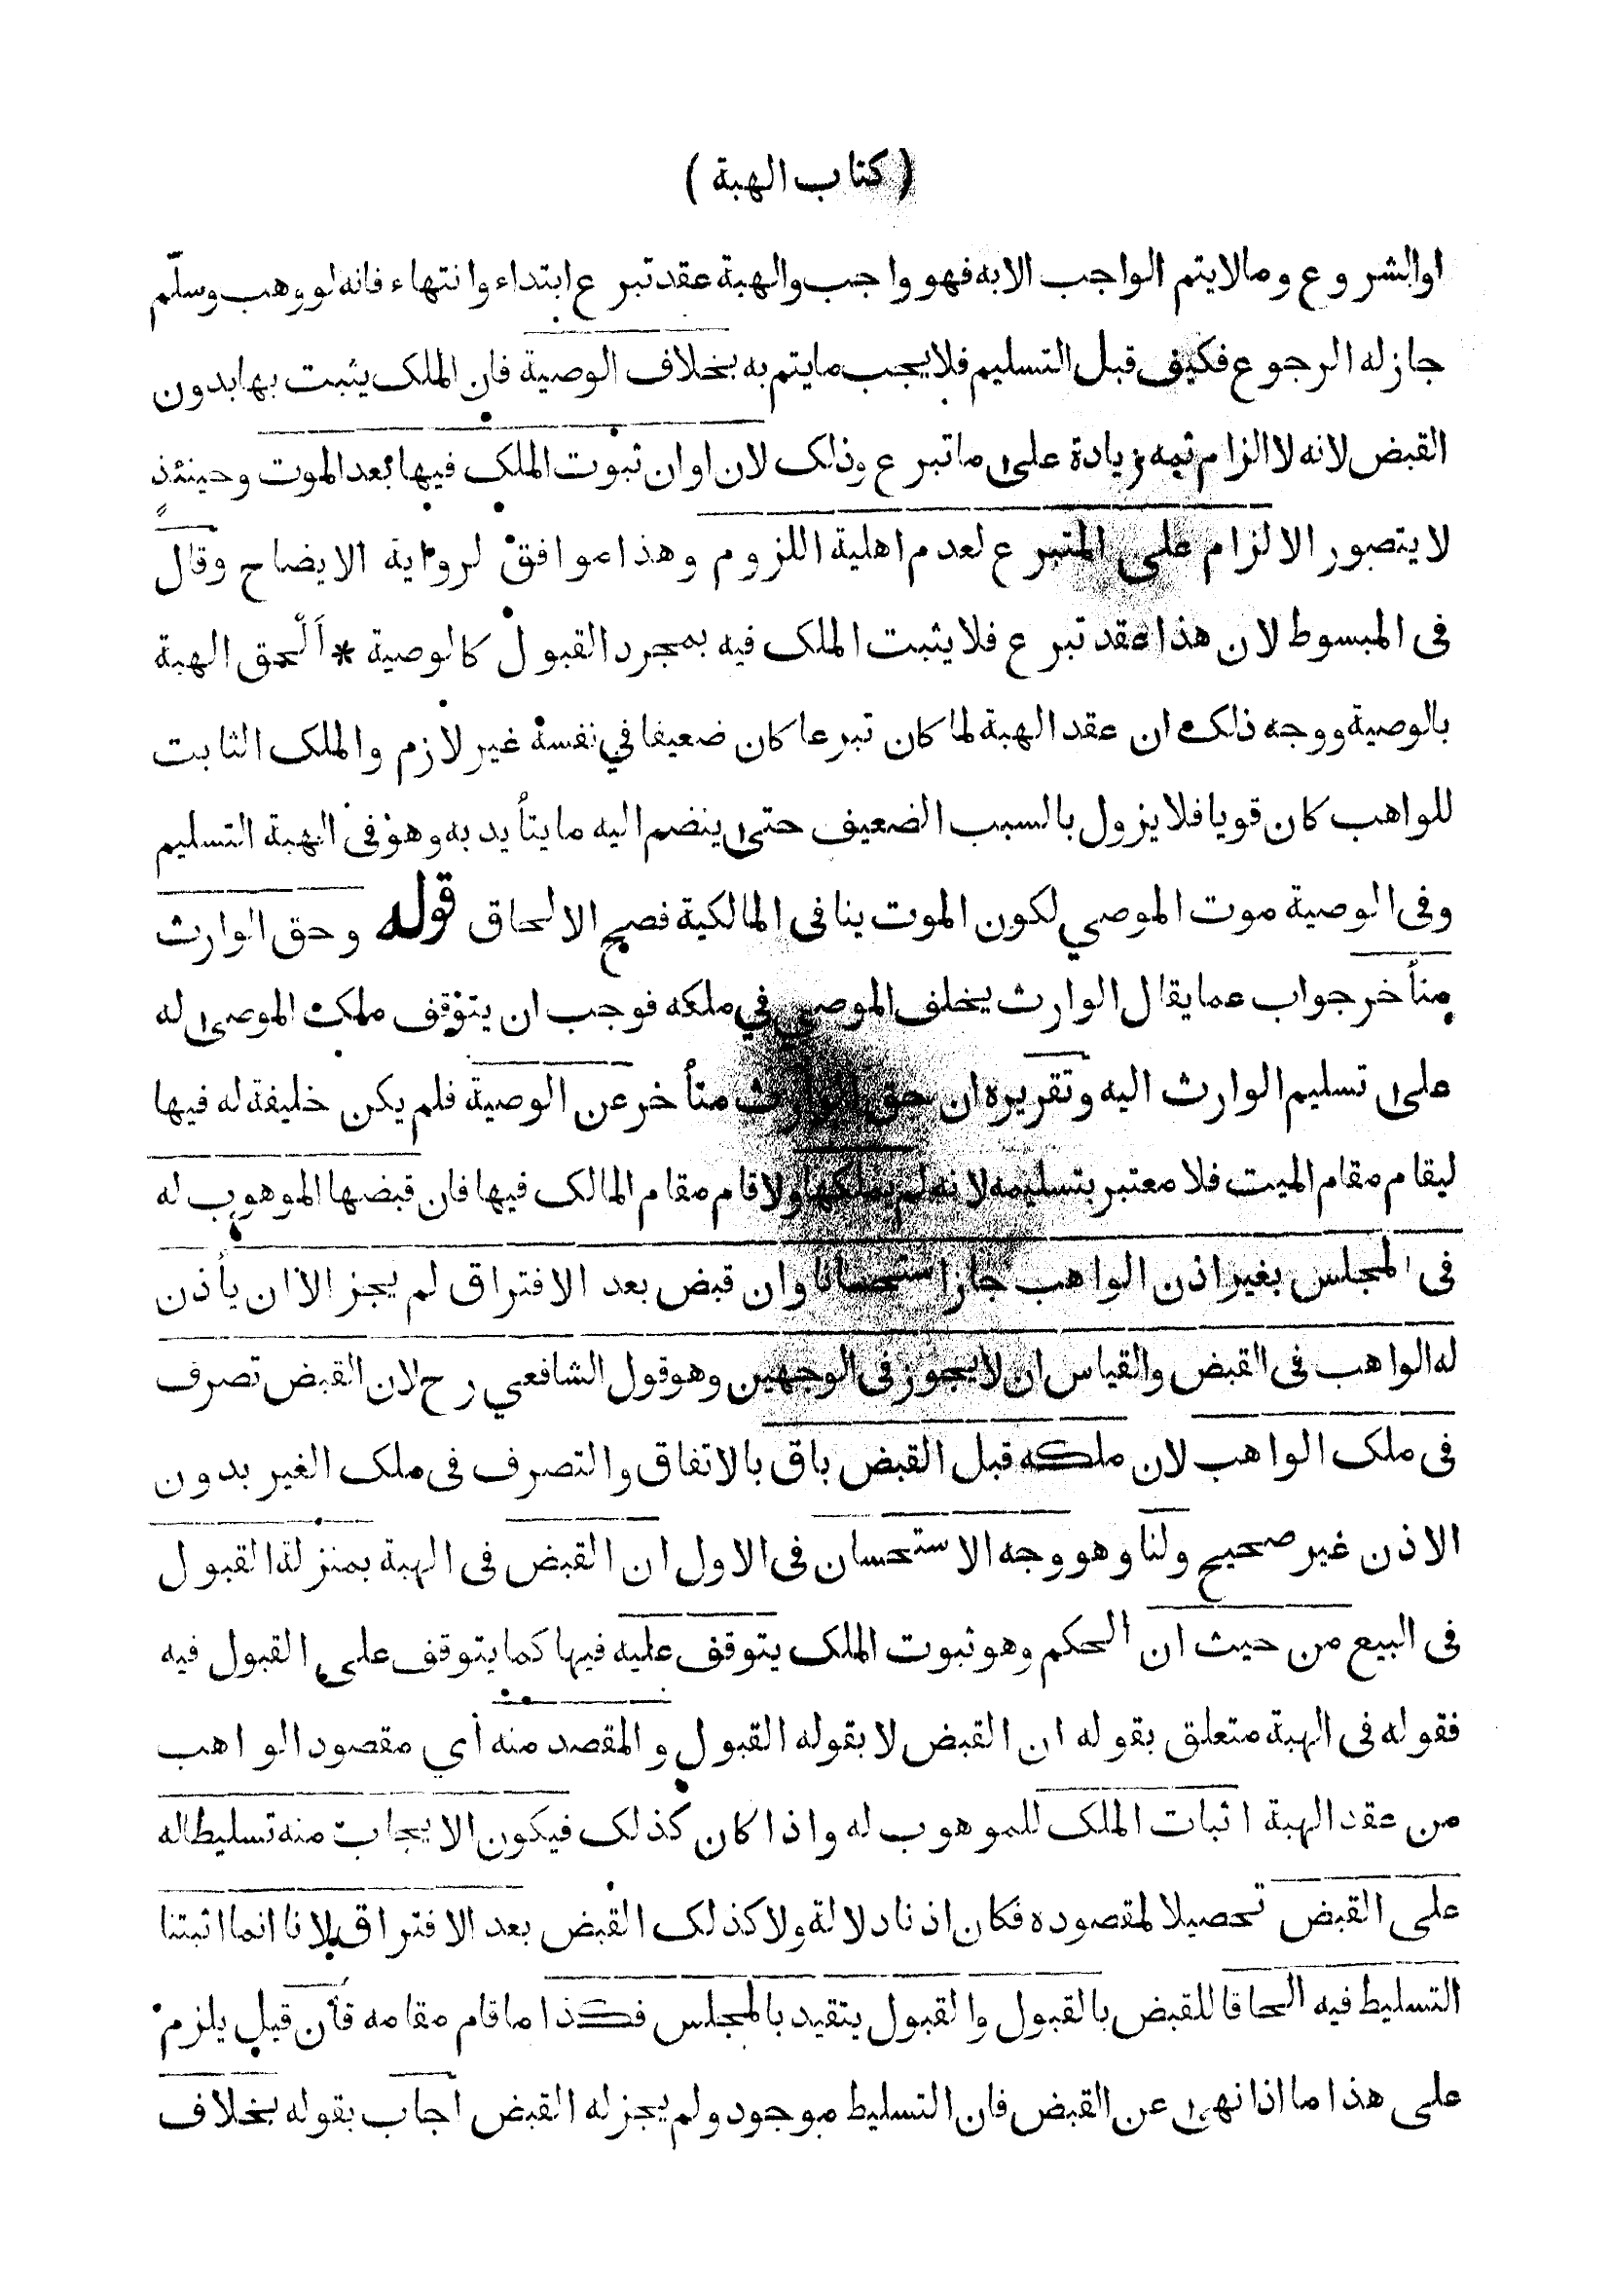 ( كتاب الهبة )
اوالشروع ومالايتم الواجب الابه فهو واجب والهبة عقد تبرع ابتداء وانتهاء فانه لووهب وسلّم
جازله الرجوع فكيف قبل التسليم فلايجب مايتم به بخلاف الوصية فان الملك يثبت بها بدون
القبض لانه لاالزام ثمه زيادة على ماتبرع وذلك لان اوان ثبوت الملك فيها بعد الموت وحينئذ
لايتصور الالزام على المتبرع لعدم اهلية اللزوم وهذا موافق لرواية الايضاح وقال
فى المبسوط لان هذا عقد تبرع فلايثبت الملك فيه بمجرد القبول كالوصية * اَلْحق الهبة
بالوصية ووجه ذلك ان عقد الهبة لما كان تبرعا كان ضعيفا في نفسه غير لازم والملك الثابت
للواهب كان قويا فلايزول بالسبب الضعيف حتى ينضم اليه مايتأيد به وهو فى الهبة التسليم
وفى الوصية موت الموصي لكون الموت ينافى المالكية فصح الالحاق قوله وحق الوارث
متأخر جواب عمايقال الوارث يخلف الموصي في ملكه فوجب ان يتوقف ملك الموصى له
على تسليم الوارث اليه وتقريره ان حق الوارث متأخر عن الوصية فلم يكن خليفة له فيها
ليقام مقام الميت فلا معتبر بتسليمه لانه لم يملكها ولاقام مقام المالك فيها فان قبضها الموهوب له
فى المجلس بغير اذن الواهب جاز استحسانا وان قبض بعد الافتراق لم يجز الا ان يأذن
له الواهب فى القبض والقياس ان لايجوز فى الوجهين وهو قول الشافعي رح لان القبض تصرف
فى ملك الواهب لان ملكه قبل القبض باق بالاتفاق والتصرف فى ملك الغير بدون
الاذن غير صحيح ولنا وهو وجه الاستحسان فى الاول ان القبض فى الهبة بمنزلة القبول
فى البيع من حيث ان الحكم وهو ثبوت الملك يتوقف عليه فيها كما يتوقف على القبول فيه
فقوله فى الهبة متعلق بقوله ان القبض لا بقوله القبول والمقصد منه أي مقصود الواهب
من عقد الهبة اثبات الملك للموهوب له واذا كان كذلك فيكون الايجاب منه تسليطاله
على القبض تحصيلا لمقصوده فكان اذنا دلالة ولاكذلك القبض بعد الافتراق لانا انما اثبتنا
التسليط فيه الحاقا للقبض بالقبول والقبول يتقيد بالمجلس فكذا ماقام مقامه فأن قيل يلزم
على هذا ما اذا نهى عن القبض فان التسليط موجود ولم يجزله القبض اجاب بقوله بخلاف